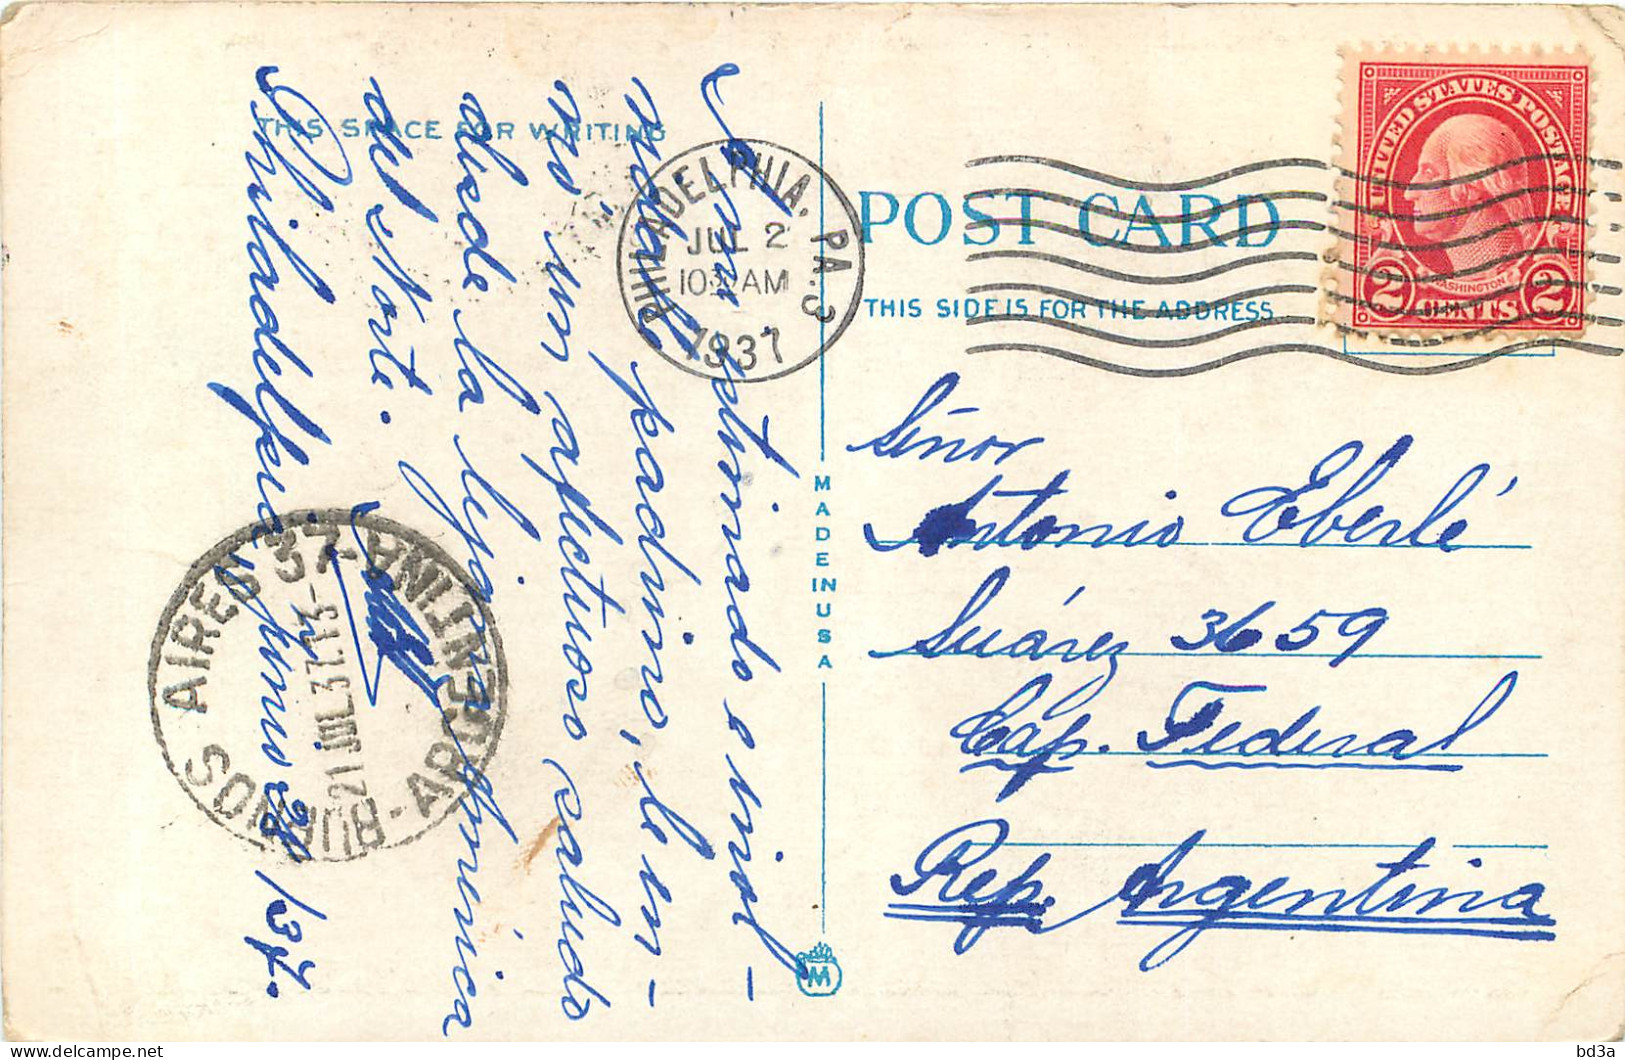 THIS SPACE FOR WRITING
A mi estimado e inol-
vidable padrino, le en-
vío un afectuoso saludo
desde la lejana America
del Norte.
Philadelphia junio 28/37.
BUENOS AIRES 37 - ARGENTINA -
21 JUL 37. 13 -
PHILADELPHIA, PA. 3
JUL 2
10 30 AM
1937
POST CARD
THIS SIDE IS FOR THE ADDRESS
UNITED STATES POSTAGE
WASHINGTON
2 CENTS 2
MADE IN USA
M
Señor
Antonio Eberlé
Suárez 3659
Cap. Federal
Rep. Argentina
bd3a